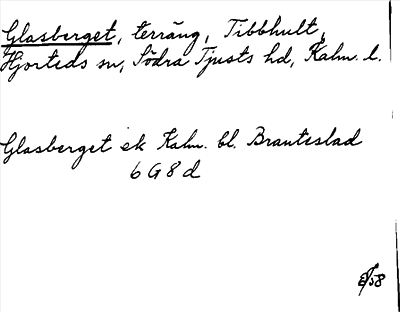 Glasberget, terräng, Tibbhult,
Hjorteds sn, Södra Tjusts hd, Kalm. l.
Glasberget ek Kalm. bl. Brantestad
6 G 8 d
58